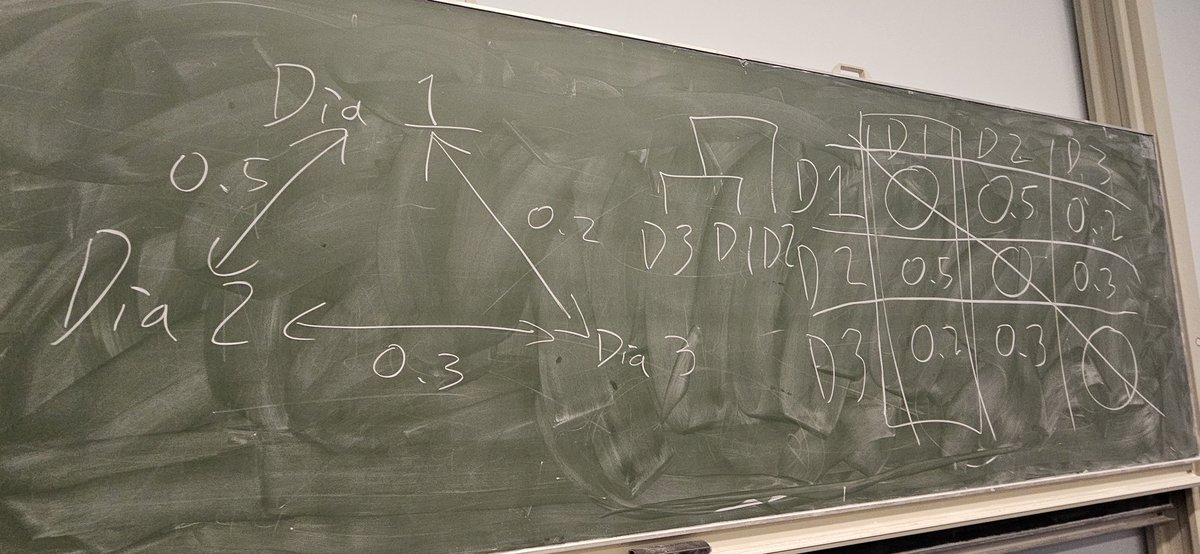 Dia 1
0.5
0.2
Dia 2
0.3
Dia 3
D3 D1 D2
D1 D2 D3
D1 0 0.5 0.2
D2 0.5 0 0.3
D3 0.2 0.3 0